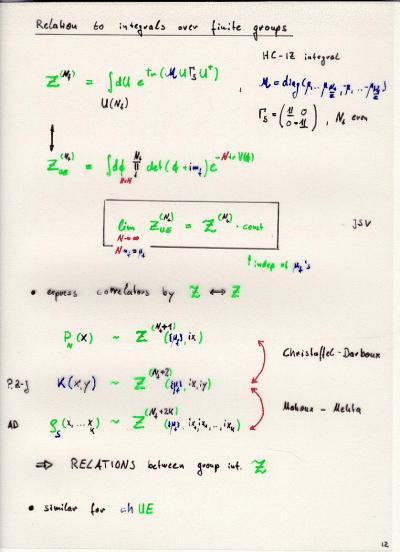 Relation to integrals over finite groups
HC-IZ integral
Z^(N_f) = ∫dU e^tr(M U Γ_S U^†),
U(N_f)
M = diag(μ_1 ... μ_{N_f/2}, -μ_1 ... -μ_{N_f/2})
Γ_S = (𝟙 0
0 -𝟙), N_f even
Z_UE^(N_f) = ∫dϕ ∏^{N_f} det(ϕ + i m_f) e^{-N tr V(ϕ)}
N×N
lim Z_UE^(N_f) = Z^(N_f) · const
N→∞
N m_f = μ_f
JSV
↑ indep of μ_f's
• express correlators by Z ↔ Z
P_N(x) ~ Z^(N_f+1)({μ_f}, ix)
Christoffel-Darboux
P.Z-J K(x,y) ~ Z^(N_f+2)({μ_f}, ix, iy)
Mahoux - Mehta
AD ρ_S(x_1 ... x_k) ~ Z^(N_f+2k)({μ_f}, ix_1, ix_1, .., ix_k)
⇒ RELATIONS between group int. Z
• similar for ch UE
12